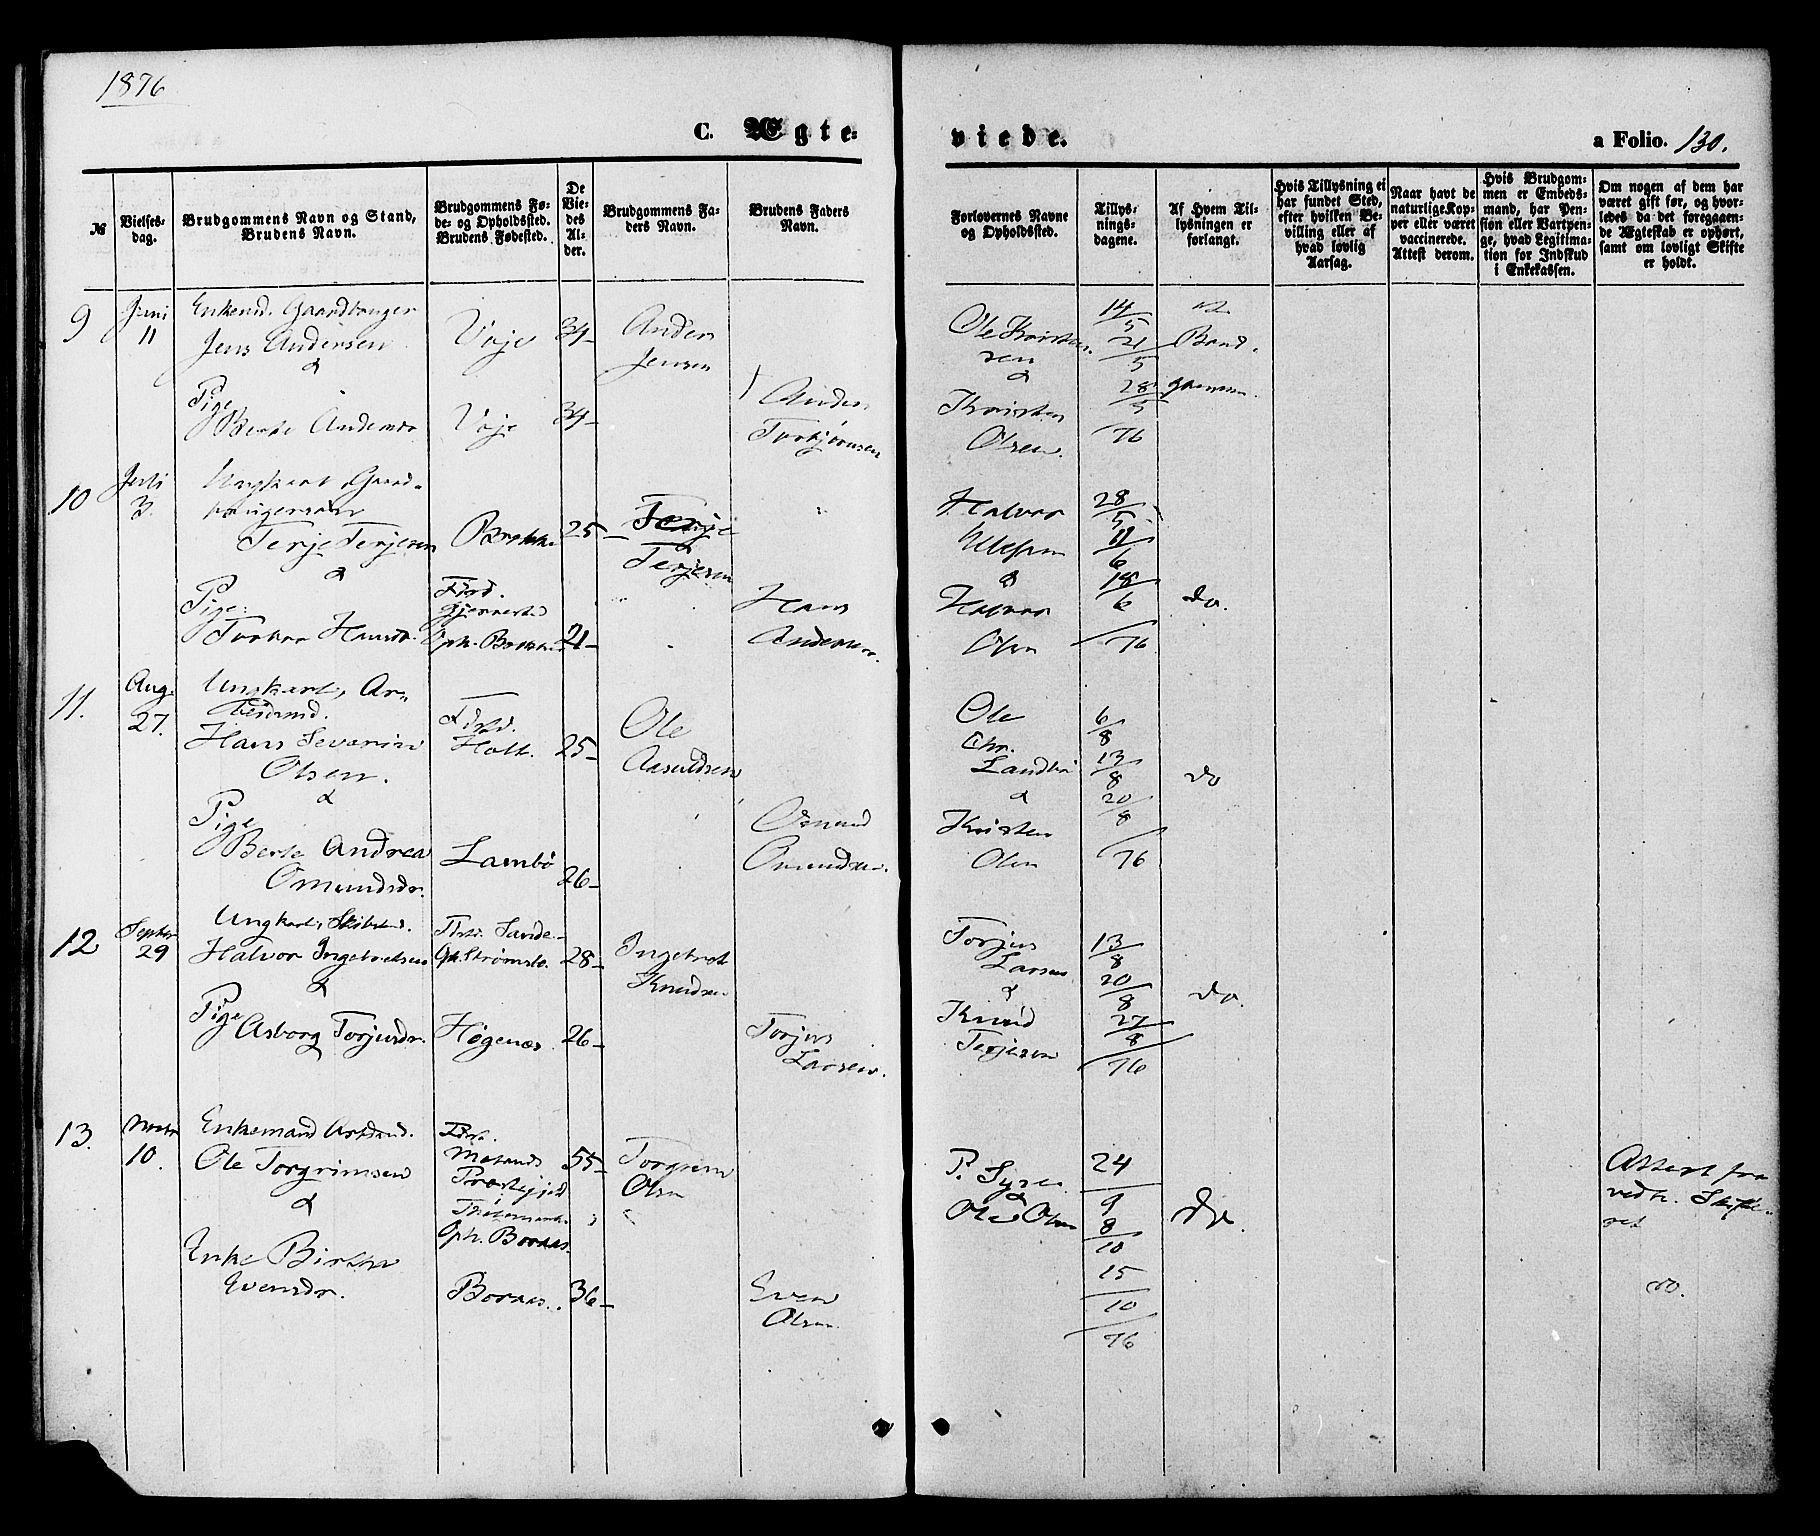 1876
C. Ægte-
viede.
a Folio. 130.
№
Vielses-
dag.
Brudgommens Navn og Stand,
Brudens Navn.
Brudgommens Fø-
de- og Opholdssted.
Brudens Fødested.
De
Vie-
des
Al-
der.
Brudgommens Fa-
ders Navn.
Brudens Faders
Navn.
Forlovernes Navne
og Opholdssted.
Tillys-
nings-
dagene.
Af Hvem Til-
lysningen er
forlangt.
Hvis Tillysning ei
har fundet Sted,
efter hvilken Be-
villing eller af
hvad lovlig
Aarsag.
Naar havt de
naturlige Kop-
per eller været
vaccinerede.
Attest derom.
Hvis Brudgom-
men er Embeds-
mand, har Pen-
sion eller Vartpen-
ge, hvad Legitima-
tion for Indskud
i Enkekassen.
Om nogen af dem har
været gift før, og hvor-
ledes da det foregaaen-
de Ægteskab er ophørt,
samt om lovligt Skifte
er holdt.
9
Juni
11
Enkemd. Gaardbruger
Jens Andersen
&
Pige
Berte Andersdr.
Voje
34-
Voje
34-
Anders
Jensen
Anders
Torbjørnsen
Ole Kristen-
sen
&
Kristen
Olsen.
14/5
21/5
28/5
76
Brud-
gommen.
10
Juli
3.
Ungkarl, Gaard-
brugersøn
Terje Terjesen
&
Pige
Torbor Hansdr.
25-
Fdsd.
Gjerrestad
Oph.
21-
Terje
Terjesen
Hans
Andersen.
Halvor
&
Halvor
Olsen
28/5
11/6
18/6
76
do.
11.
Aug.
27.
Ungkarl, Ar-
beidsmd.
Hans Severin
Olsen.
&
Pige
Berte Andrea
Omundsdr.
Fdsd.
Holt.
25-
Lambø
26-
Ole
Aasuldsen
Omund
Omundsen.
Ole
Chr.
&
Kristen
Olsen
6/8
13/8
20/8
76
do
12
Septbr
29
Ungkarl,
Halvor Ingebretsen
&
Pige
Asborg Torjusdr.
Fdsd. Sande-
28-
Høgenæs
26-
Ingebret
Knudsen
Torjus
Larsen.
Torjus
Larsen
&
Knud
Terjesen
13/8
20/8
27/8
76
do.
13.
Novbr
10.
Enkemand Arbdsmd.
Ole Torgrimsen
&
Enke
Evensdr.
Fdsd.
Præstegjeld
Oph. Boraas
55-
Boraas.
36-
Torgrim
Olsen
Even
Olsen
P.
&
Ole Olsen
24/9
8/10
15/10
76
do.
Attest fra
vedk.
do.